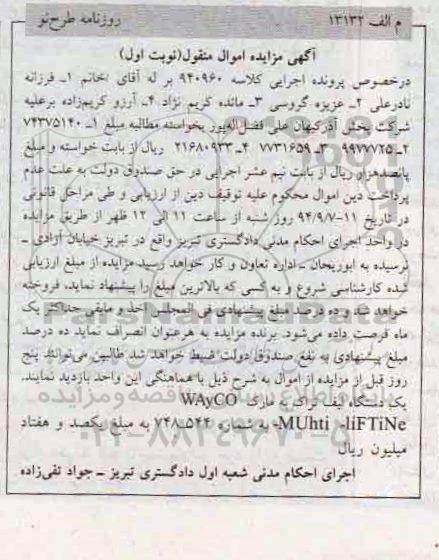 م الف ۱۳۱۳۲ روزنامه طرح‌نو
آگهی مزایده اموال منقول(نوبت اول)
درخصوص پرونده اجرایی کلاسه ۹۴۰۹۶۰ بر له آقای /خانم ۱ـ فرزانه
نادرعلی ۲ـ عزیزه گروسی ۳ـ مائده کریم نژاد ۴ـ آرزو کریم‌زاده برعلیه
شرکت پخش آذرکیهان علی فضل‌اله‌پور بخواسته مطالبه مبلغ ۱ـ ۷۴۳۷۵۱۴۰
۲ـ ۹۹۷۷۷۲۵ ۳ـ ۷۷۳۱۶۵۹ ۴ـ ۲۱۶۸۰۹۳۳ ریال از بابت خواسته و مبلغ
پانصدهزار ریال از بابت نیم عشر اجرایی در حق صندوق دولت به علت عدم
پرداخت دین اموال محکوم علیه توقیف دین از ارزیابی و طی مراحل قانونی
در تاریخ ۱۱-۹۴/۹/۷ روز شنبه از ساعت ۱۱ الی ۱۲ ظهر از طریق مزایده
در واحد اجرای احکام مدنی دادگستری تبریز واقع در تبریز خیابان آزادی ـ
نرسیده به ابوریحان ـ اداره تعاون و کار خواهد رسید مزایده از مبلغ ارزیابی
شده کارشناسی شروع و به کسی که بالاترین مبلغ را پیشنهاد نماید، فروخته
خواهد شد و ده درصد مبلغ پیشنهادی فی المجلس اخذ و مابقی حداکثر یک
ماه فرصت داده می‌شود. برنده مزایده به هرعنوان انصراف نماید ده درصد
مبلغ پیشنهادی به نفع صندوق دولت ضبط خواهد شد طالبین می‌توانند پنج
روز قبل از مزایده از اموال به شرح ذیل با هماهنگی این واحد بازدید نمایند.
یک دستگاه لیف تراک به مارک WAyCO
-MUhti -liFTiNe به شماره ۵۴۴ـ۷۴۸ به مبلغ یکصد و هفتاد
میلیون ریال
اجرای احکام مدنی شعبه اول دادگستری تبریز ـ جواد تقی‌زاده
۰۲۱-۸۸۳۴۹۶۷۰-۵